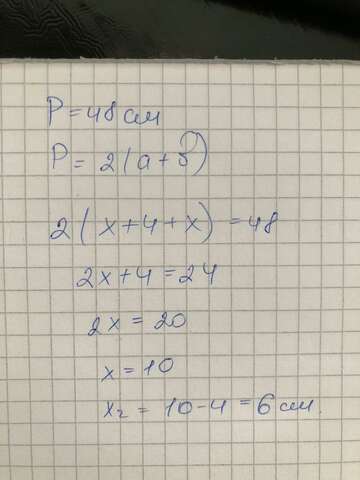 P = 48 см
P = 2(a + б)
2(x + 4 + x) = 48
2x + 4 = 24
2x = 20
x = 10
x₂ = 10 - 4 = 6 см.